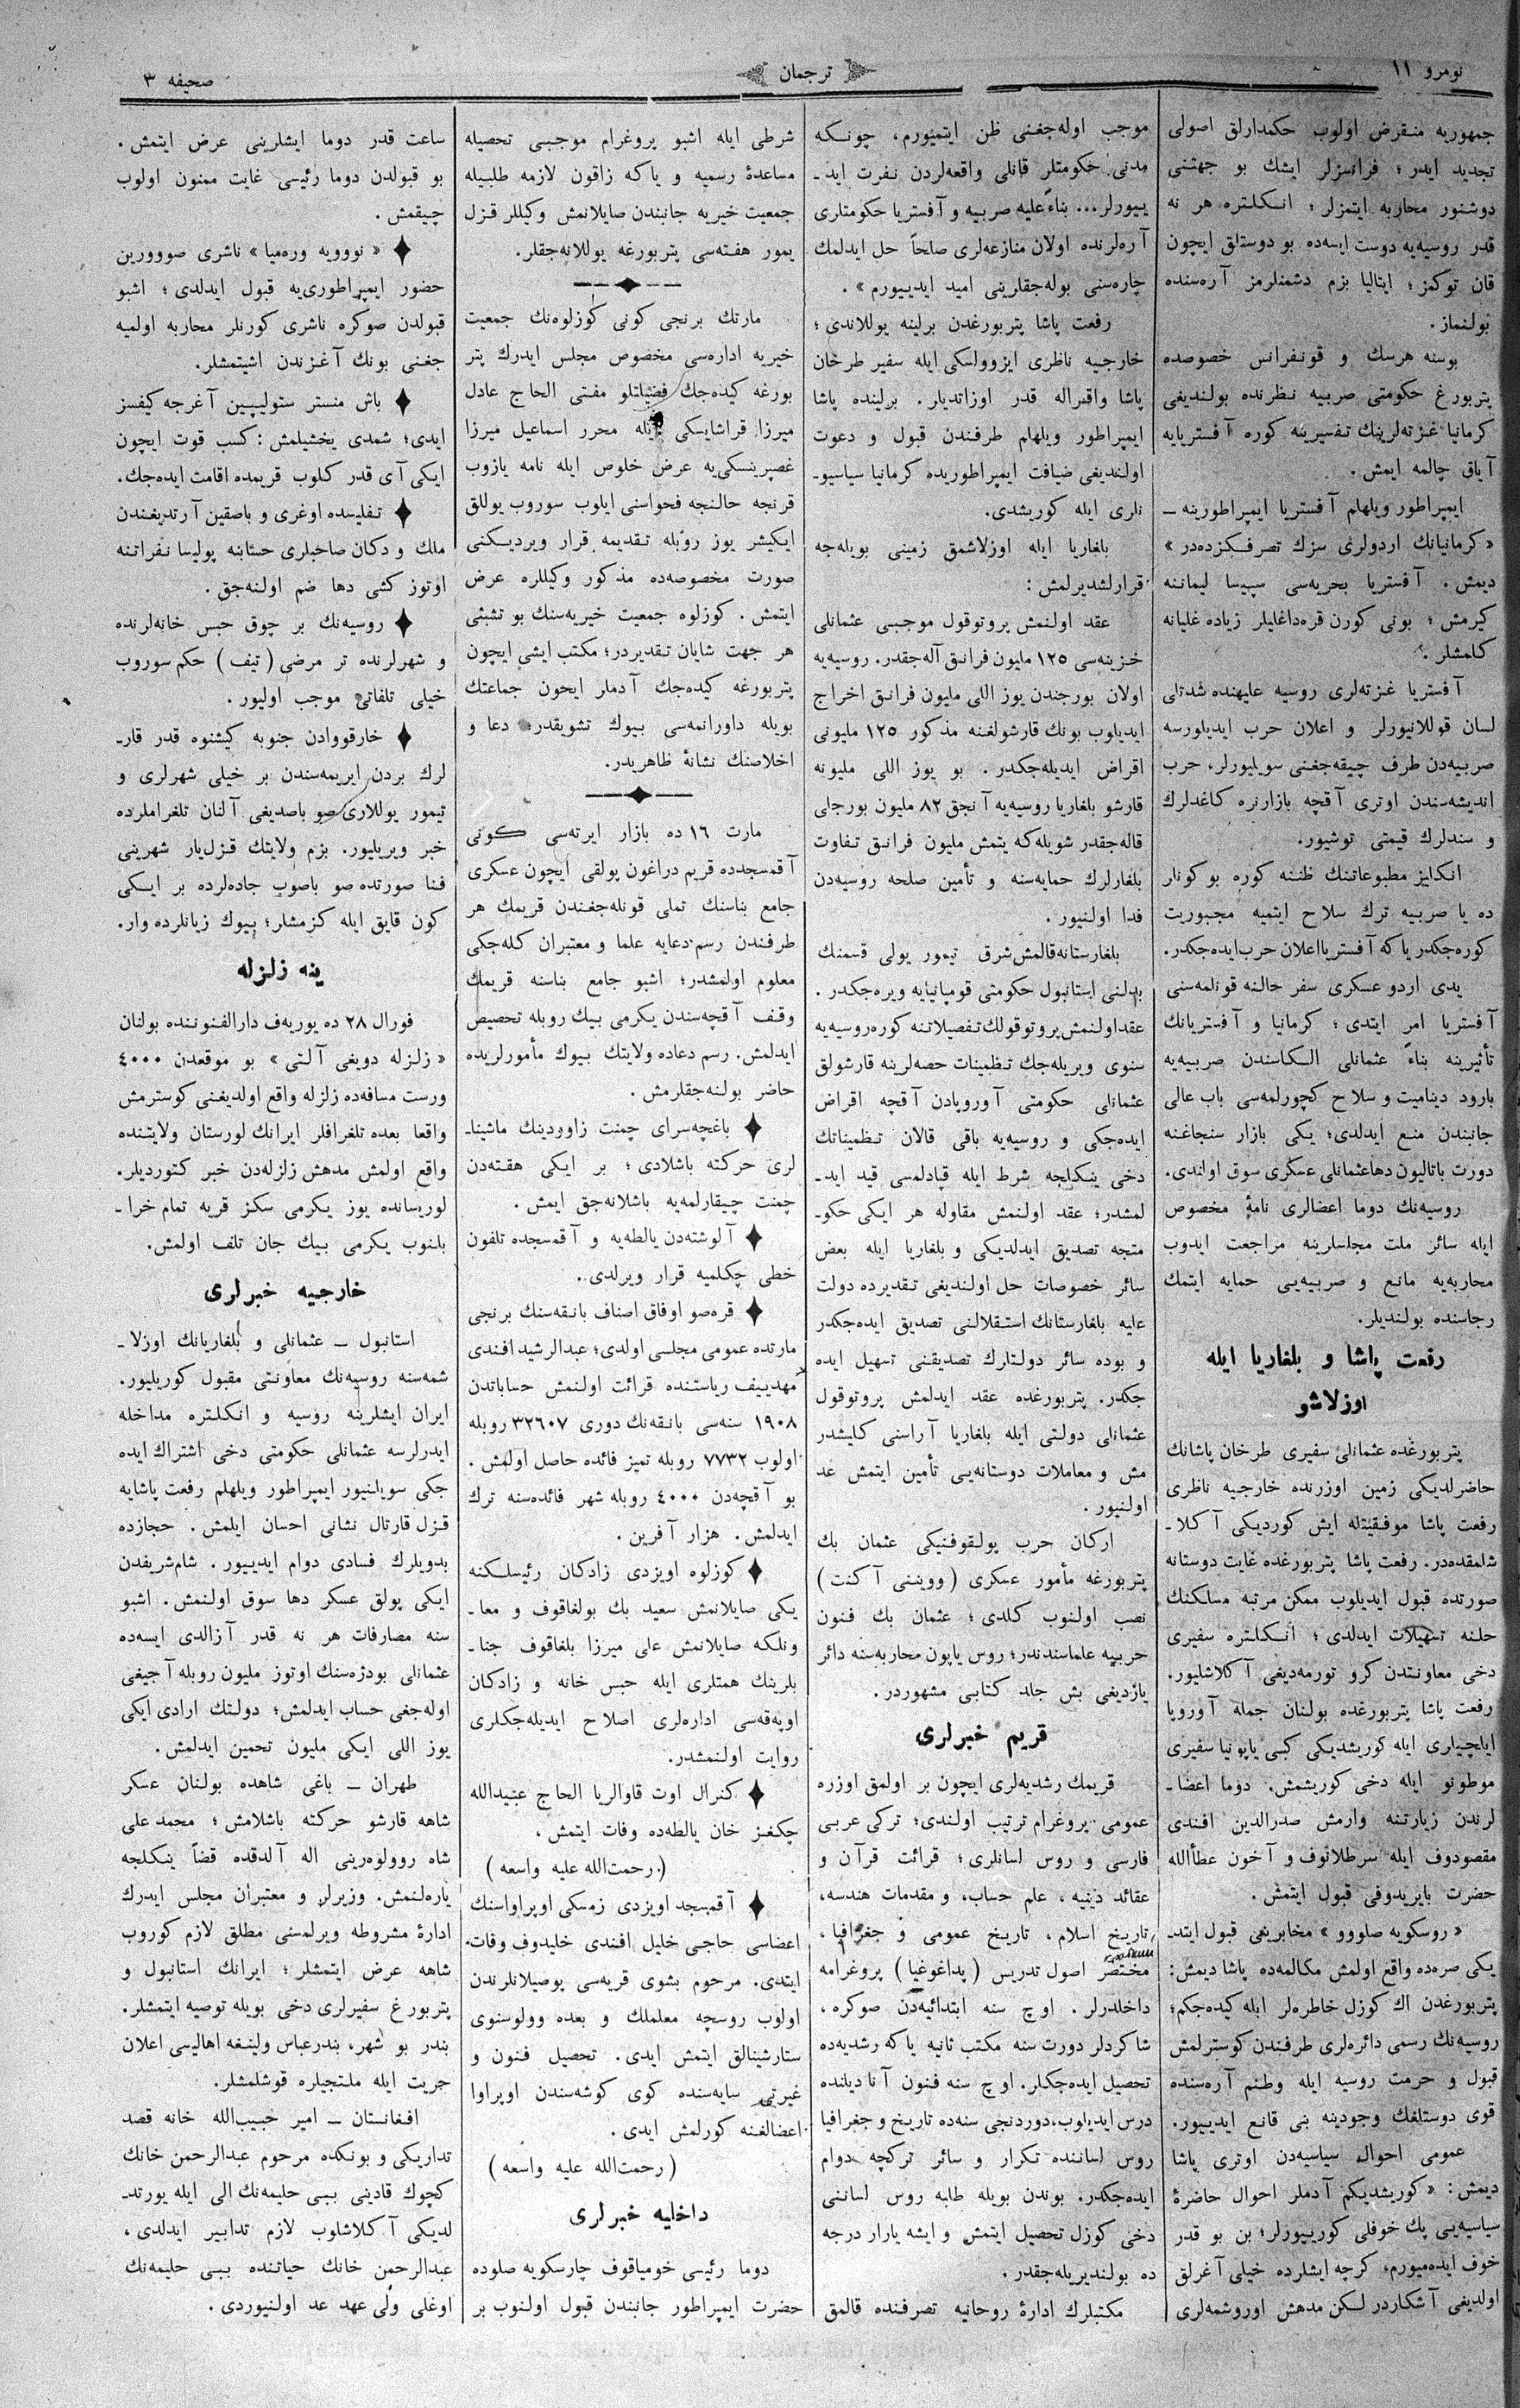 نومرو ١١
ترجمان
صحيفه ٣
جمهوريه منقرض اولوب حكمدارلق اصولى
تجديد ايدر ؛ فرانسزلر ايشك بو جهتنى
دوشنور محاربه ايتمزلر ؛ انكلتره هر نه
قدر روسيه‌يه دوست ايسه‌ده بو دوستلق ايچون
قان توكمز ؛ ايتاليا بزم دشمنلرمز آره‌سنده
بولنماز .
بوسنه هرسك و قونفرانس خصوصده
پتربورغ حكومتى صربيه نظرنده بولنديغى
كرمانيا غزته‌لرينك تفسيرينه كوره آفسترياي‌ه
آياق چالمه ايمش .
ايمپراطور ويلهلم آفستريا ايمپراطورينه ــ
«كرمانيانك اردولرى سزك تصرفكزده‌در»
ديمش . آفستريا بحريه‌سى سپيسا ليماننه
كيرمش ؛ بونى كورن قره‌داغليلر زياده غليانه
كلمشلر .
آفستريا غزته‌لرى روسيه عليهنده شدتلى
لسان قوللانيورلر و اعلان حرب ايديلورسه
صربيه‌دن طرف چيقه‌جغنى سويليورلر، حرب
انديشه‌سندن اوترى آقچه بازارنره كاغدلرك
و سندلرك قيمتى توشيور.
انكليز مطبوعاتنك ظننه كوره بو كونلر
ده يا صربيه ترك سلاح ايتميه مجبوريت
كوره‌جكدر ياكه آفستريااعلان حرب‌ايده‌جكدر.
يدى اردو عسكرى سفر حالنه قونلمه‌سنى
آفستريا امر ايتدى ؛ كرمانيا و آفستريانك
تأثيرينه بناءً عثمانلى الكاسندن صربيه‌يه
بارود ديناميت و سلاح كچورلمه‌سى باب عالى
جانبندن منع ايدلدى؛ يكى بازار سنجاغنه
دورت باتاليون دها‌عثمانلى عسكرى سوق اولندى.
روسيه‌نك دوما اعضالرى نامهٔ مخصوص
ايله سائر ملت مجلسلرينه مراجعت ايدوب
محاربه‌يه مانع و صربيه‌يى حمايه ايتمك
رجاسنده بولنديلر.
رفعت پاشا و بلغاريا ايله
اوزلاشو
پتربورغده عثمانلى سفيرى طرخان پاشانك
حاضرلديكى زمين اوزرنده خارجيه ناظرى
رفعت پاشا موفقيتله ايش كورديكى آكلا ــ
شلمقده‌در. رفعت پاشا پتربورغده غايت دوستانه
صورتده قبول ايديلوب ممكن مرتبه مسلكنك
حلنه تسهيلات ايدلدى ؛ انكلتره سفيرى
دخى معاونتدن كرو تورمه‌ديغى آكلاشليور.
رفعت پاشا پتربورغده بولنان جمله آوروپا
ايلچيلرى ايله كوريشديكى كبى ياپونيا سفيرى
موطونو ايله دخى كوريشمش. دوما اعضا ــ
لرندن زيارتنه وارمش صدرالدين افندى
مقصودوف ايله سرطلانوف و آخون عطأالله
حضرت بايزيدوفى قبول ايتمش .
«روسكويه صلووو» مخابريغى قبول ايتد ــ
يكى صره‌ده واقع اولمش مكالمه‌ده پاشا ديمش:
پتربورغدن اك كوزل خاطره‌لر ايله كيده‌جكم؛
روسيه‌نك رسمى دائره‌لرى طرفندن كوسترلمش
قبول و حرمت روسيه ايله وطنم آره‌سنده
قوى دوستلغك وجودينه بنى قانع ايدييور.
عمومى احوال سياسيه‌دن اوترى پاشا
ديمش : «كوريشديكم آدملر احوال حاضرهٔ
سياسيه‌يى پك خوفلى كوريپورلر؛ بن بو قدر
خوف ايده‌ميورم، كرچه ايشلرده خيلى آغرلق
اولديغى آشكاردر لكن مدهش اوروشمه‌لرى
موجب اوله‌جغنى ظن ايتميورم، چونكه
مدنى حكومتلر قانلى واقعه‌لردن نفرت ايد ــ
يپورلر... بناءً عليه صربيه و آفستريا حكومتلرى
آره‌لرنده اولان منازعه‌لرى صلحاً حل ايدلمك
چاره‌سنى بوله‌جقلرينى اميد ايدييورم» .
رفعت پاشا پتربورغدن برلينه يوللاندى ؛
خارجيه ناظرى ايزوولسكى ايله سفير طرخان
پاشا واقسراله قدر اوزاتديلر. برلينده پاشا
ايمپراطور ويلهلم طرفندن قبول و دعوت
اولنديغى ضيافت ايمپراطوريده كرمانيا سياسيو ــ
نلرى ايله كوريشدى.
بلغاريا ايله اوزلاشمق زمينى بويله‌جه
قرارلشديرلمش :
عقد اولنمش پروتوقول موجبى عثمانلى
خزينه‌سى ١٢٥ مليون فرانق آله‌جقدر. روسيه‌يه
اولان بورجندن يوز اللى مليون فرانق اخراج
ايديلوب بونك قارشولغنه مذكور ١٢٥ مليونى
اقراض ايديله‌جكدر . بو يوز اللى مليونه
قارشو بلغاريا روسيه‌يه آنجق ٨٢ مليون بورجلى
قاله‌جقدر شويله‌كه يتمش مليون فرانق تفاوت
بلغارلرك حمايه‌سنه و تأمين صلحه روسيه‌دن
فدا اولنيور .
بلغارستانه‌قالمش شرق تيمور يولى قسمنك
بدلنى استانبول حكومتى قومپانيايه ويره‌جكدر .
عقداولنمش پروتوقولك تفصيلاتنه كوره‌روسيه‌يه
سنوى ويريله‌جك تظمينات حصه‌لرينه قارشولق
عثمانلى حكومتى آوروپادن آقچه اقراض
ايده‌جكى و روسيه‌يه باقى قالان تظميناتك
دخى ينكلجه شرط ايله قپادلمسى قيد ايد ــ
لمشدر؛ عقد اولنمش مقاوله هر ايكى حكو ــ
متجه تصديق ايدلديكى و بلغاريا ايله بعض
سائر خصوصات حل اولنديغى تقديرده دولت
عليه بلغارستانك استقلالنى تصديق ايده‌جكدر
و بوده سائر دولتلرك تصديقنى تسهيل ايده
جكدر. پتربورغده عقد ايدلمش پروتوقول
عثمانلى دولتى ايله بلغاريا آراسنى كليشدر
مش و معاملات دوستانه‌يى تأمين ايتمش عد
اولنيور .
اركان حرب پولقوفنيكى عثمان بك
پتربورغه مأمور عسكرى (ووينى آكنت)
نصب اولنوب كلدى ؛ عثمان بك فنون
حربيه علماسندندر؛ روس ياپون محاربه‌سنه دائر
يازديغى بش جلد كتابى مشهوردر.
قريم خبرلرى
قريمك رشديه‌لرى ايچون بر اولمق اوزره
عمومى پروغرام ترتيب اولندى؛ تركى عربى
فارسى و روس لسانلرى ؛ قرائت قرآن و
عقائد دينيه ، علم حساب، و مقدمات هندسه،
تاريخ اسلام، تاريخ عمومى و جغرافيا ،
مختصر اصول تدريس (پداغوغيا) پروغرامه
داخلدرلر . اوچ سنه ابتدائيه‌دن صوكره ،
شاكردلر دورت سنه مكتب ثانيه ياكه رشديه‌ده
تحصيل ايده‌جكلر. اوچ سنه فنون آنا ديلنده
درس ايديلوب، دوردنجى سنه‌ده تاريخ و جغرافيا
روس لساننده تكرار و سائر تركچه دوام
ايده‌جكدر. بوندن بويله طلبه روس لساننى
دخى كوزل تحصيل ايتمش و ايشه يارار درجه
ده بولنديريله‌جقدر .
مكتبلرك ادارهٔ روحانيه تصرفنده قالمق
شرطى ايله اشبو پروغرام موجبى تحصيله
مساعدهٔ رسميه و ياكه زاقون لازمه طلبيله
جمعيت خيريه جانبندن صايلانمش وكيللر قزل
يمور هفته‌سى پتربورغه يوللانه‌جقلر.
مارتك برنجى كونى كوزلوه‌نك جمعيت
خيريه اداره‌سى مخصوص مجلس ايدرك پتر
بورغه كيده‌جك فضيلتلو مفتى الحاج عادل
ميرزا قراشايسكى ايله محرر اسماعيل ميرزا
غصپرينسكى‌يه عرض خلوص ايله نامه يازوب
قرنجه حالنجه فحواسنى ايلوب سوروب يوللق
ايكيشر يوز روبله تقديمه قرار ويرديكنى
صورت مخصوصه‌ده مذكور وكيللره عرض
ايتمش . كوزلوه جمعيت خيريه‌سنك بو تشبثى
هر جهت شايان تقديردر؛ مكتب ايشى ايچون
پتربورغه كيده‌جك آدملر ايحون جماعتك
بويله داورانمه‌سى بيوك تشويقدر، دعا و
اخلاصنك نشانهٔ ظاهريدر.
مارت ١٦ ده بازار ايرته‌سى كونى
آقمسجدده قريم دراغون پولقى ايچون عسكرى
جامع بناسنك تملى قونله‌جغندن قريمك هر
طرفندن رسم دعايه علما و معتبران كله‌جكى
معلوم اولمشدر؛ اشبو جامع بناسنه قريمك
وقف آقچه‌سندن يكرمى بيك روبله تخصيص
ايدلمش. رسم دعاده ولايتك بيوك مأمورلريده
حاضر بولنه‌جقلرمش .
باغچه‌سراى چمنت زاوردينك ماشينا ــ
لرى حركته باشلادى ؛ بر ايكى هفته‌دن
چمنت چيقارلمه‌يه باشلانه‌جق ايمش .
آلوشته‌دن يالطه‌يه و آقمسجده تلفون
خطى چكلميه قرار ويرلدى .
قره‌صو اوفاق اصناف بانقه‌سنك برنجى
مارتده عمومى مجلسى اولدى؛ عبدالرشيد افندى
مهدييف رياستنده قرائت اولنمش حساباتدن
١٩٠٨ سنه‌سى بانقه‌نك دورى ٣٢٦٠٧ روبله
اولوب ٧٧٣٢ روبله تميز فائده حاصل اولمش .
بو آقچه‌دن ٤٠٠٠ روبله شهر فائده‌سنه ترك
ايدلمش. هزار آفرين .
كوزلوه اويزدى زادكان رئيسلكنه
يكى صايلانمش سعيد بك بولغاقوف و معا ــ
ونلكه صايلانمش على ميرزا بلغاقوف جنا ــ
بلرينك همتلرى ايله حبس خانه و زادكان
اوپه‌قه‌سى اداره‌لرى اصلاح ايديله‌جكلرى
روايت اولنمشدر.
كنرال اوت قاوالريا الحاج عبيدالله
چنكغز خان يالطه‌ده وفات ايتمش .
(رحمت‌الله عليه واسعه)
آقمسجد اويزدى زمسكى اوپراواسنك
اعضاسى حاجى خليل افندى خليدوف وفات
ايتدى. مرحوم بشوى قريه‌سى پوصيلانلرندن
اولوب روسچه معلملك و بعده وولوسنوى
ستارشينالق ايتمش ايدى. تحصيل فنون و
غيرتى سايه‌سنده كوى كوشه‌سندن اوپراوا
اعضالغنه كورلمش ايدى .
(رحمت‌الله عليه واسعه)
داخليه خبرلرى
دوما رئيسى خومياقوف چارسكويه صلوده
حضرت ايمپراطور جانبندن قبول اولنوب بر
ساعت قدر دوما ايشلرينى عرض ايتمش .
بو قبولدن دوما رئيسى غايت ممنون اولوب
چيقمش .
«نووويه وره‌ميا» ناشرى صووورين
حضور ايمپراطورى‌يه قبول ايدلدى ؛ اشبو
قبولدن صوكره ناشرى كورنلر محاربه اولميه
جغنى بونك آغزندن اشيتمشلر.
باش منستر ستوليپين آغرجه كيفسز
ايدى؛ شمدى يخشيلمش : كسب قوت ايچون
ايكى آى قدر كلوب قريمده اقامت ايده‌جك.
تفليسده اوغرى و باصقين آرتديغندن
ملك و دكان صاحبلرى حسابنه پوليسا نفراتنه
اوتوز كشى دها ضم اولنه‌جق .
روسيه‌نك بر چوق حبس خانه‌لرنده
و شهرلرنده تر مرضى (تيف) حكم سوروب
خيلى تلفاتى موجب اوليور .
خارقووادن جنوبه كيشنوه قدر قار ــ
لرك بردن ايريمه‌سندن بر خيلى شهرلرى و
تيمور يوللارى صو باصديغى آلنان تلغراملرده
خبر ويريليور. بزم ولايتك قزل‌يار شهرينى
فنا صورتده صو باصوب جاده‌لرده بر ايكى
كون قايق ايله كزمشلر؛ بيوك زيانلرده وار.
ينه زلزله
فورال ٢٨ ده يوريه‌ف دارالفنوننده بولنان
«زلزله دويغى آلتى» بو موقعدن ٤٠٠٠
ورست مسافه‌ده زلزله واقع اولديغنى كوسترمش
واقعا بعده تلغرافلر ايرانك لورستان ولايتنده
واقع اولمش مدهش زلزله‌دن خبر كتورديلر.
لوريستانده يوز يكرمى سكز قريه تمام خرا ــ
بلنوب يكرمى بيك جان تلف اولمش.
خارجيه خبرلرى
استانبول ــ عثمانلى و بلغاريانك اوزلا ــ
شمه‌سنه روسيه‌نك معاونتى مقبول كوريليور.
ايران ايشلرينه روسيه و انكلتره مداخله
ايدرلرسه عثمانلى حكومتى دخى اشتراك ايده
جكى سويلنيور ايمپراطور ويلهلم رفعت پاشايه
قزل قارتال نشانى احسان ايلمش . حجازده
بدويلرك فسادى دوام ايدييور . شام‌شريفدن
ايكى پولق عسكر دها سوق اولنمش. اشبو
سنه مصارفات هر نه قدر آزالدى ايسه‌ده
عثمانلى بودژه‌سنك اوتوز مليون روبله آجيغى
اوله‌جغى حساب ايدلمش؛ دولتك ارادى ايكى
يوز اللى ايكى مليون تحمين ايدلمش .
طهران ــ باغى شاهده بولنان عسكر
شاهه قارشو حركته باشلامش ؛ محمد على
شاه روولوه‌رينى اله آلدقده قضاً ينكلجه
ياره‌لنمش. وزيرلر و معتبران مجلس ايدرك
ادارهٔ مشروطه ويرلمسنى مطلق لازم كوروب
شاهه عرض ايتمشلر ؛ ايرانك استانبول و
پتربورغ سفيرلرى دخى بويله توصيه ايتمشلر.
بندر بو شهر، بندرعباس ولينغه اهاليسى اعلان
حريت ايله ملتجيلره قوشلمشلر.
افغانستان ــ امير حبيب‌الله خانه قصد
تداريكى و بونكده مرحوم عبدالرحمن خانك
كچوك قادينى ببى حليمه‌نك الى ايله يورتد ــ
لديكى آكلاشلوب لازم تدابير ايدلدى ،
عبدالرحمن خانك حياتنده ببى حليمه‌نك
اوغلى ولى عهد عد اولنيوردى .